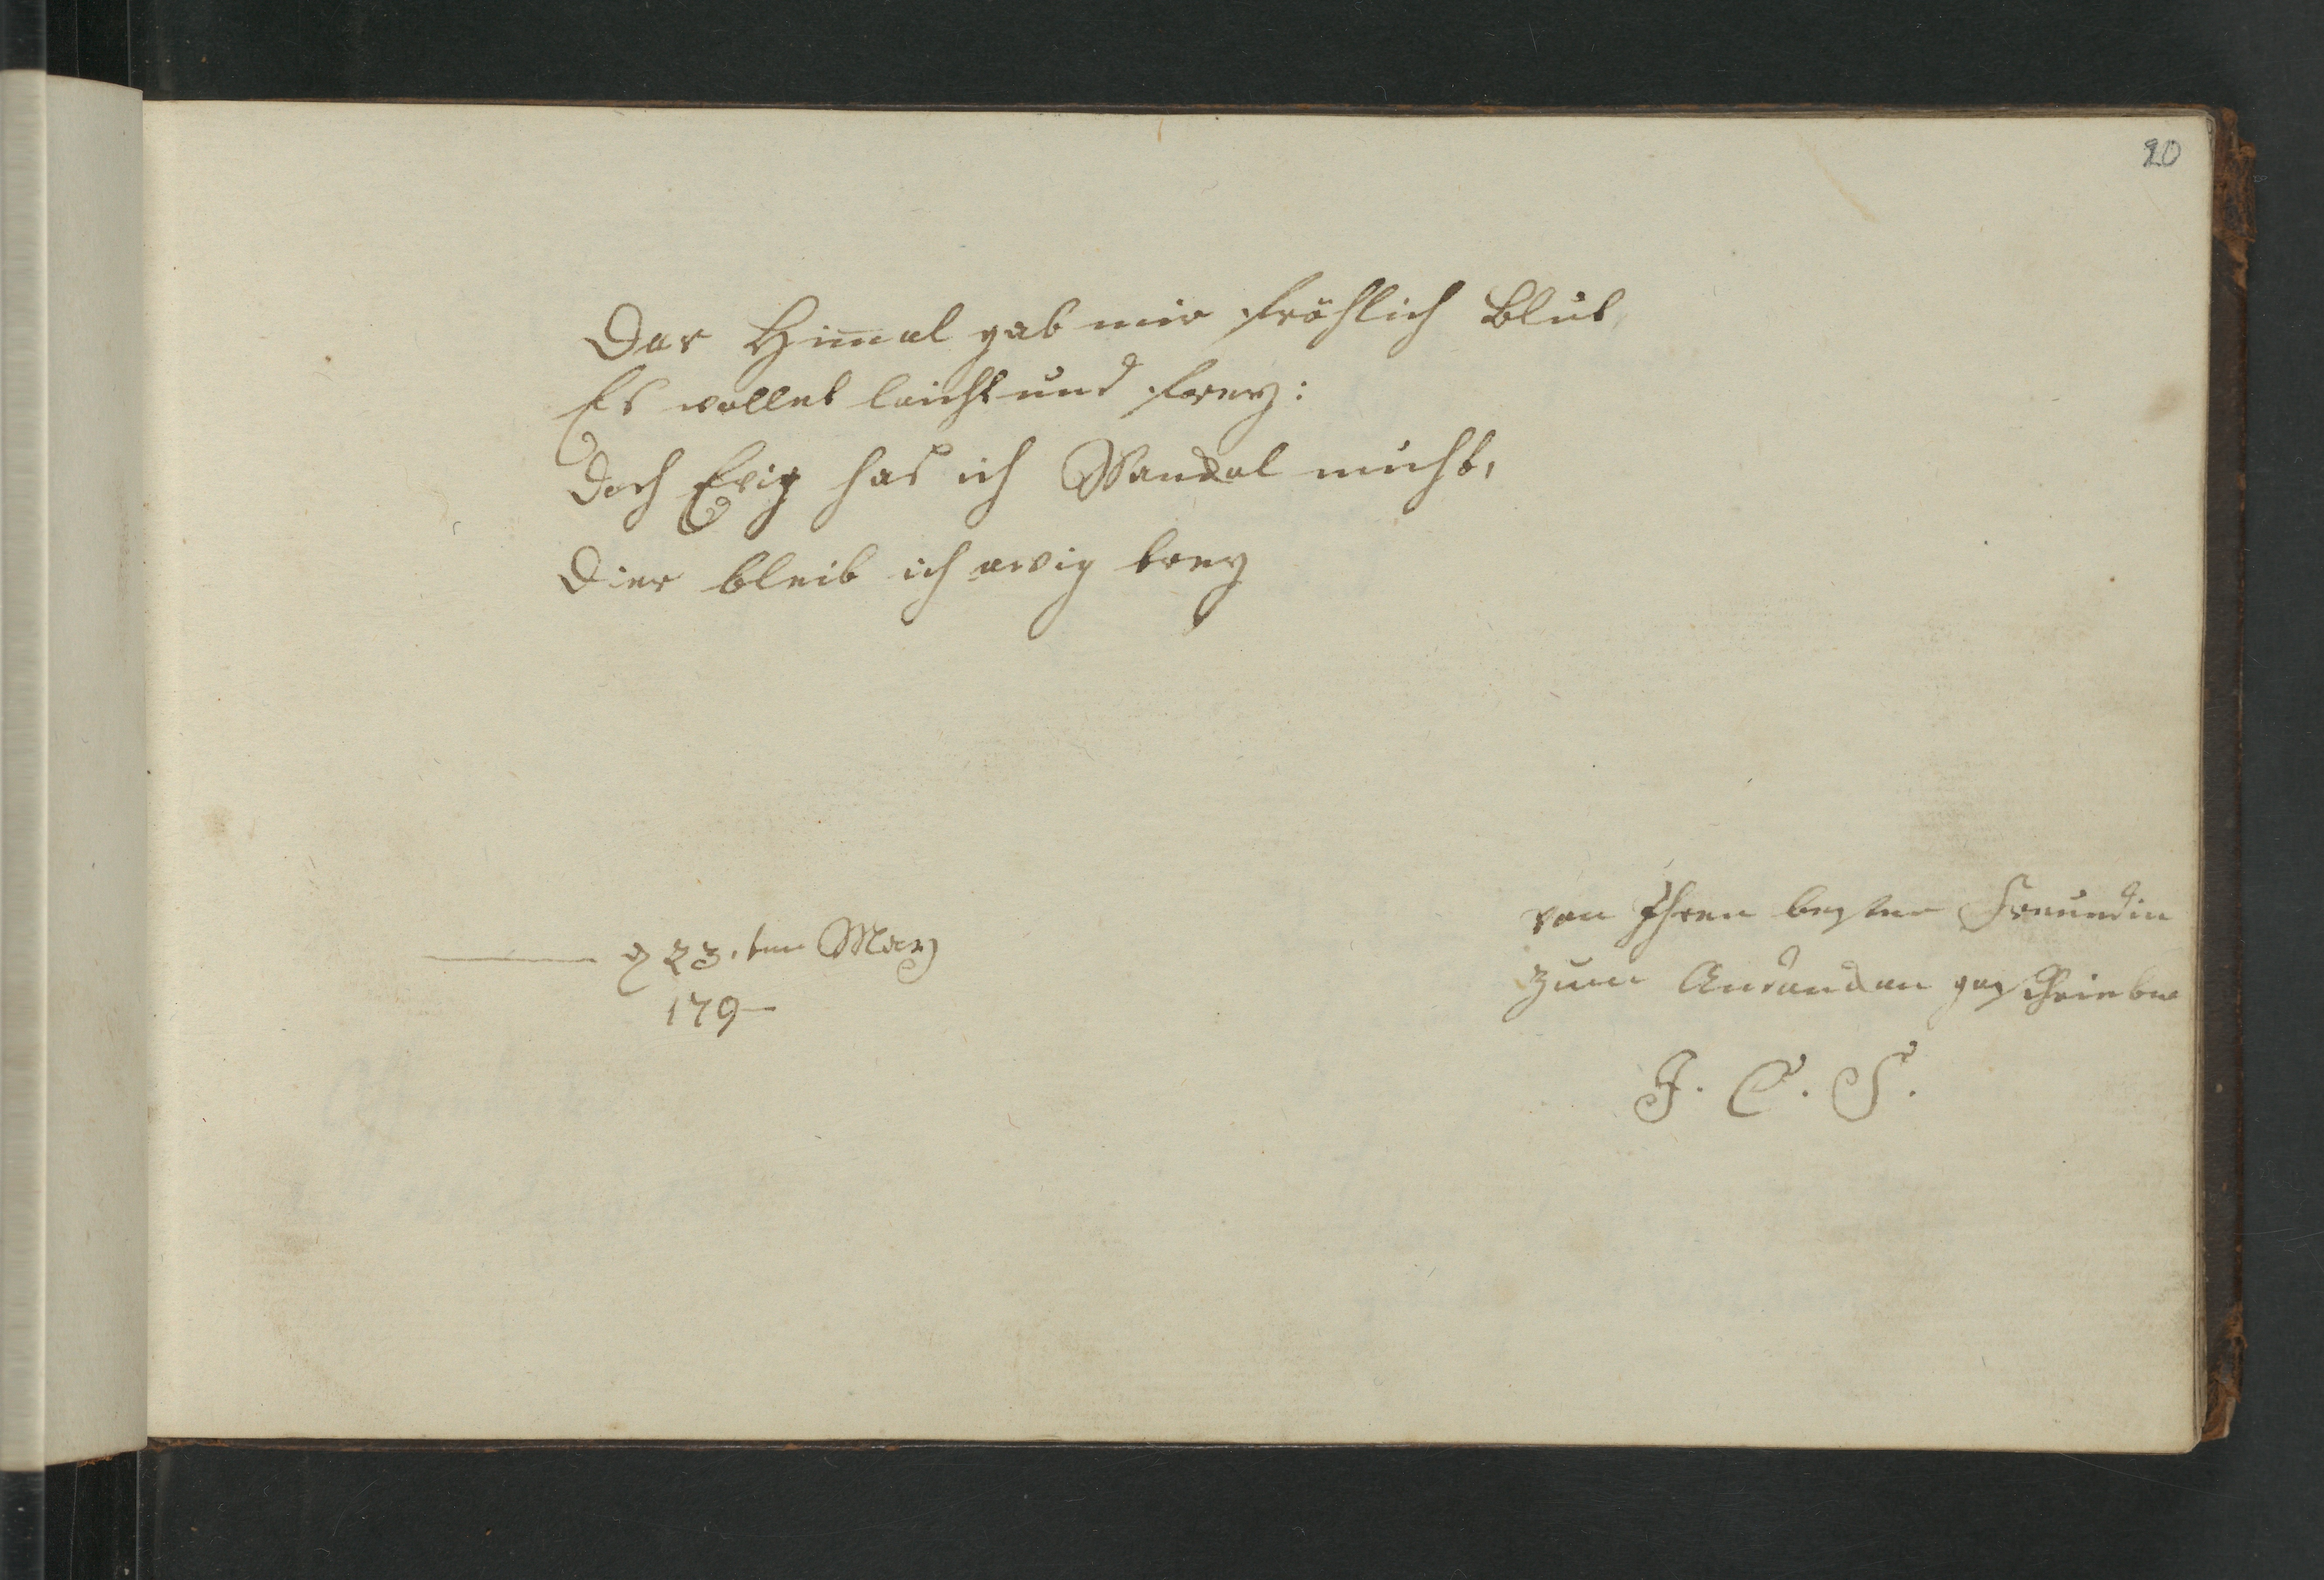 20
Der Him̄el gab mir fröhlich Blut,
Es wallet leicht und frey:
Doch Ewig has ich Wandel muht,
Dier bleib ich ewig trey
d 23. ten Merz
179-
von Ihren besten Freundin
zum Andenken geschrieben
J. C. S.